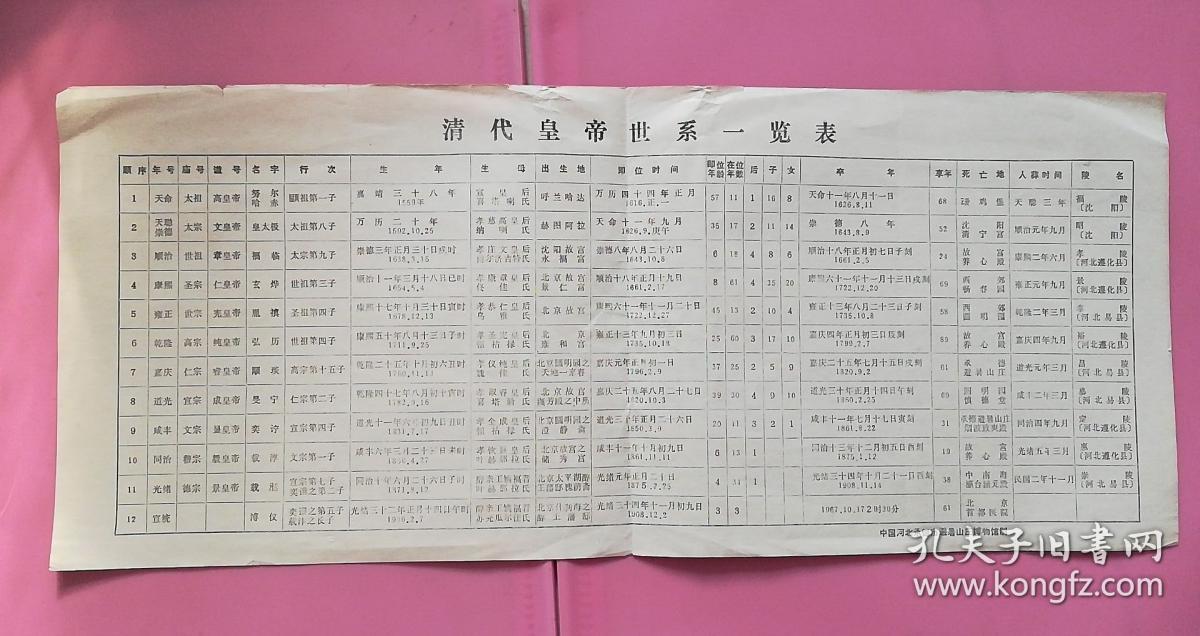 清代皇帝世系一览表
顺序 年号 庙号 谥号 名字 行次 生年 生母 出生地 即位时间 即位年龄 在位年数 后 子 女 卒年 享年 死亡地 入葬时间 陵名
1 天命 太祖 高皇帝 努尔哈赤 显祖第一子 嘉靖三十八年 1559年 宣皇后喜塔喇氏 呼兰哈达 万历四十四年正月 1616.正.一 57 11 1 16 8 天命十一年八月十一日 1626.8.11 68 叆鸡堡 天聪三年 福陵(沈阳)
2 天聪崇德 太宗 文皇帝 皇太极 太祖第八子 万历二十年 1592.10.25 孝慈高皇后纳喇氏 赫图阿拉 天命十一年九月 1626.9.庚午 35 17 2 11 14 崇德八年 1643.8.9 52 沈阳清宁宫 顺治元年九月 昭陵(沈阳)
3 顺治 世祖 章皇帝 福临 太宗第九子 崇德三年正月三十日戌时 1638.3.15 孝庄文皇后 沈阳故宫永福宫 崇德八年八月二十六日 1643.10.8 6 18 4 8 6 顺治十八年正月初七日子刻 1661.2.5 24 故宫养心殿 康熙二年六月 孝陵(河北遵化县)
4 康熙 圣宗 仁皇帝 玄烨 世祖第三子 顺治十一年三月十八日巳时 1654.5.4 孝康章皇后佟佳氏 北京故宫景仁宫 顺治十八年正月十九日 1661.2.17 8 61 4 35 20 康熙六十一年十一月十三日戌刻 1722.12.20 69 西郊畅春园 雍正元年九月 景陵(河北遵化县)
5 雍正 世宗 宪皇帝 胤禛 圣祖第四子 康熙十七年十月三十日寅时 1678.12.13 孝恭仁皇后乌雅氏 北京故宫 康熙六十一年十一月二十日 1722.12.27 45 13 2 10 4 雍正十三年八月二十三日子刻 1735.10.8 58 西郊圆明园 乾隆二年三月 泰陵(河北易县)
6 乾隆 高宗 纯皇帝 弘历 世祖第四子 康熙五十年八月十三日子时 1711.9.25 孝圣宪皇后钮祜禄氏 北京雍和宫 雍正十三年九月初三日 1735.10.18 25 60 3 17 10 嘉庆四年正月初三日辰刻 1799.2.7 89 故宫养心殿 嘉庆四年九月 裕陵(河北遵化县)
7 嘉庆 仁宗 睿皇帝 颙琰 高宗第十五子 乾隆二十五年十月初六丑时 1760.11.13 孝仪纯皇后魏佳氏 北京圆明园之天地一家春 嘉庆元年正月初一日 1796.2.9 37 25 2 5 9 嘉庆二十五年七月十五日戌刻 1820.9.2 61 承德避暑山庄 道光元年三月 昌陵(河北易县)
8 道光 宣宗 成皇帝 旻宁 仁宗第二子 乾隆四十七年八月初十寅时 1782.9.16 孝淑睿皇后喜塔腊氏 北京故宫 嘉庆二十五年八月二十七日 1820.10.3 39 30 4 9 10 道光三十年正月十四日午刻 1850.2.25 69 圆明园慎德堂 咸丰二年三月 慕陵(河北易县)
9 咸丰 文宗 显皇帝 奕詝 宣宗第四子 道光十一年六月初九日丑时 1831.7.17 孝全成皇后钮祜禄氏 北京圆明园之澄静斋 道光三十年正月二十六日 1850.3.9 20 11 3 2 1 咸丰十一年七月十七日寅刻 1861.8.22 31 承德避暑山庄烟波致爽殿 同治四年九月 定陵(河北遵化县)
10 同治 穆宗 毅皇帝 载淳 文宗第一子 咸丰六年三月二十三日未时 1856.4.27 孝钦显皇后叶赫那拉氏 北京故宫之储秀宫 咸丰十一年十月初九日 1861.11.11 6 13 1 同治十三年十二月初五日酉刻 1875.1.12 19 故宫养心殿 光绪五年三月 惠陵(河北遵化县)
11 光绪 德宗 景皇帝 载湉 宣宗第七子奕譞之第二子 同治十年六月二十六日子时 1871.8.12 醇亲王嫡福晋叶赫那拉氏 北京太平湖醇王潘邸槐荫斋 光绪元年正月二十日 1875.2.25 4 34 1 光绪三十四年十月二十一日酉刻 1908.11.14 38 中南海瀛台涵元殿 民国二年十一月 崇陵(河北易县)
12 宣统 溥仪 奕譞之第五子载沣之长子 光绪三十二年正月十四日午时 1906.2.7 醇亲王嫡福晋苏完瓜尔佳氏 北京什刹海之醇王潘邸 光绪三十四年十一月初九日 1908.12.2 3 3 1967.10.17 2时30分 61 北京首都医院
中国河北承德市避暑山庄博物馆制
孔夫子旧书网
www.kongfz.com